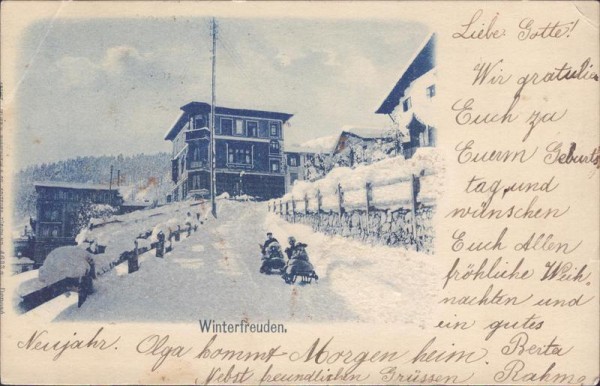 Liebe Gotte!
Wir gratulie
Euch zu
Euerm Geburts
tag und
wünschen
Euch Allen
fröhliche Weih-
nachten und
ein gutes
Winterfreuden.
Neujahr. Olga kommt Morgen heim. Berta
Nebst freundlichen Grüssen Rahm